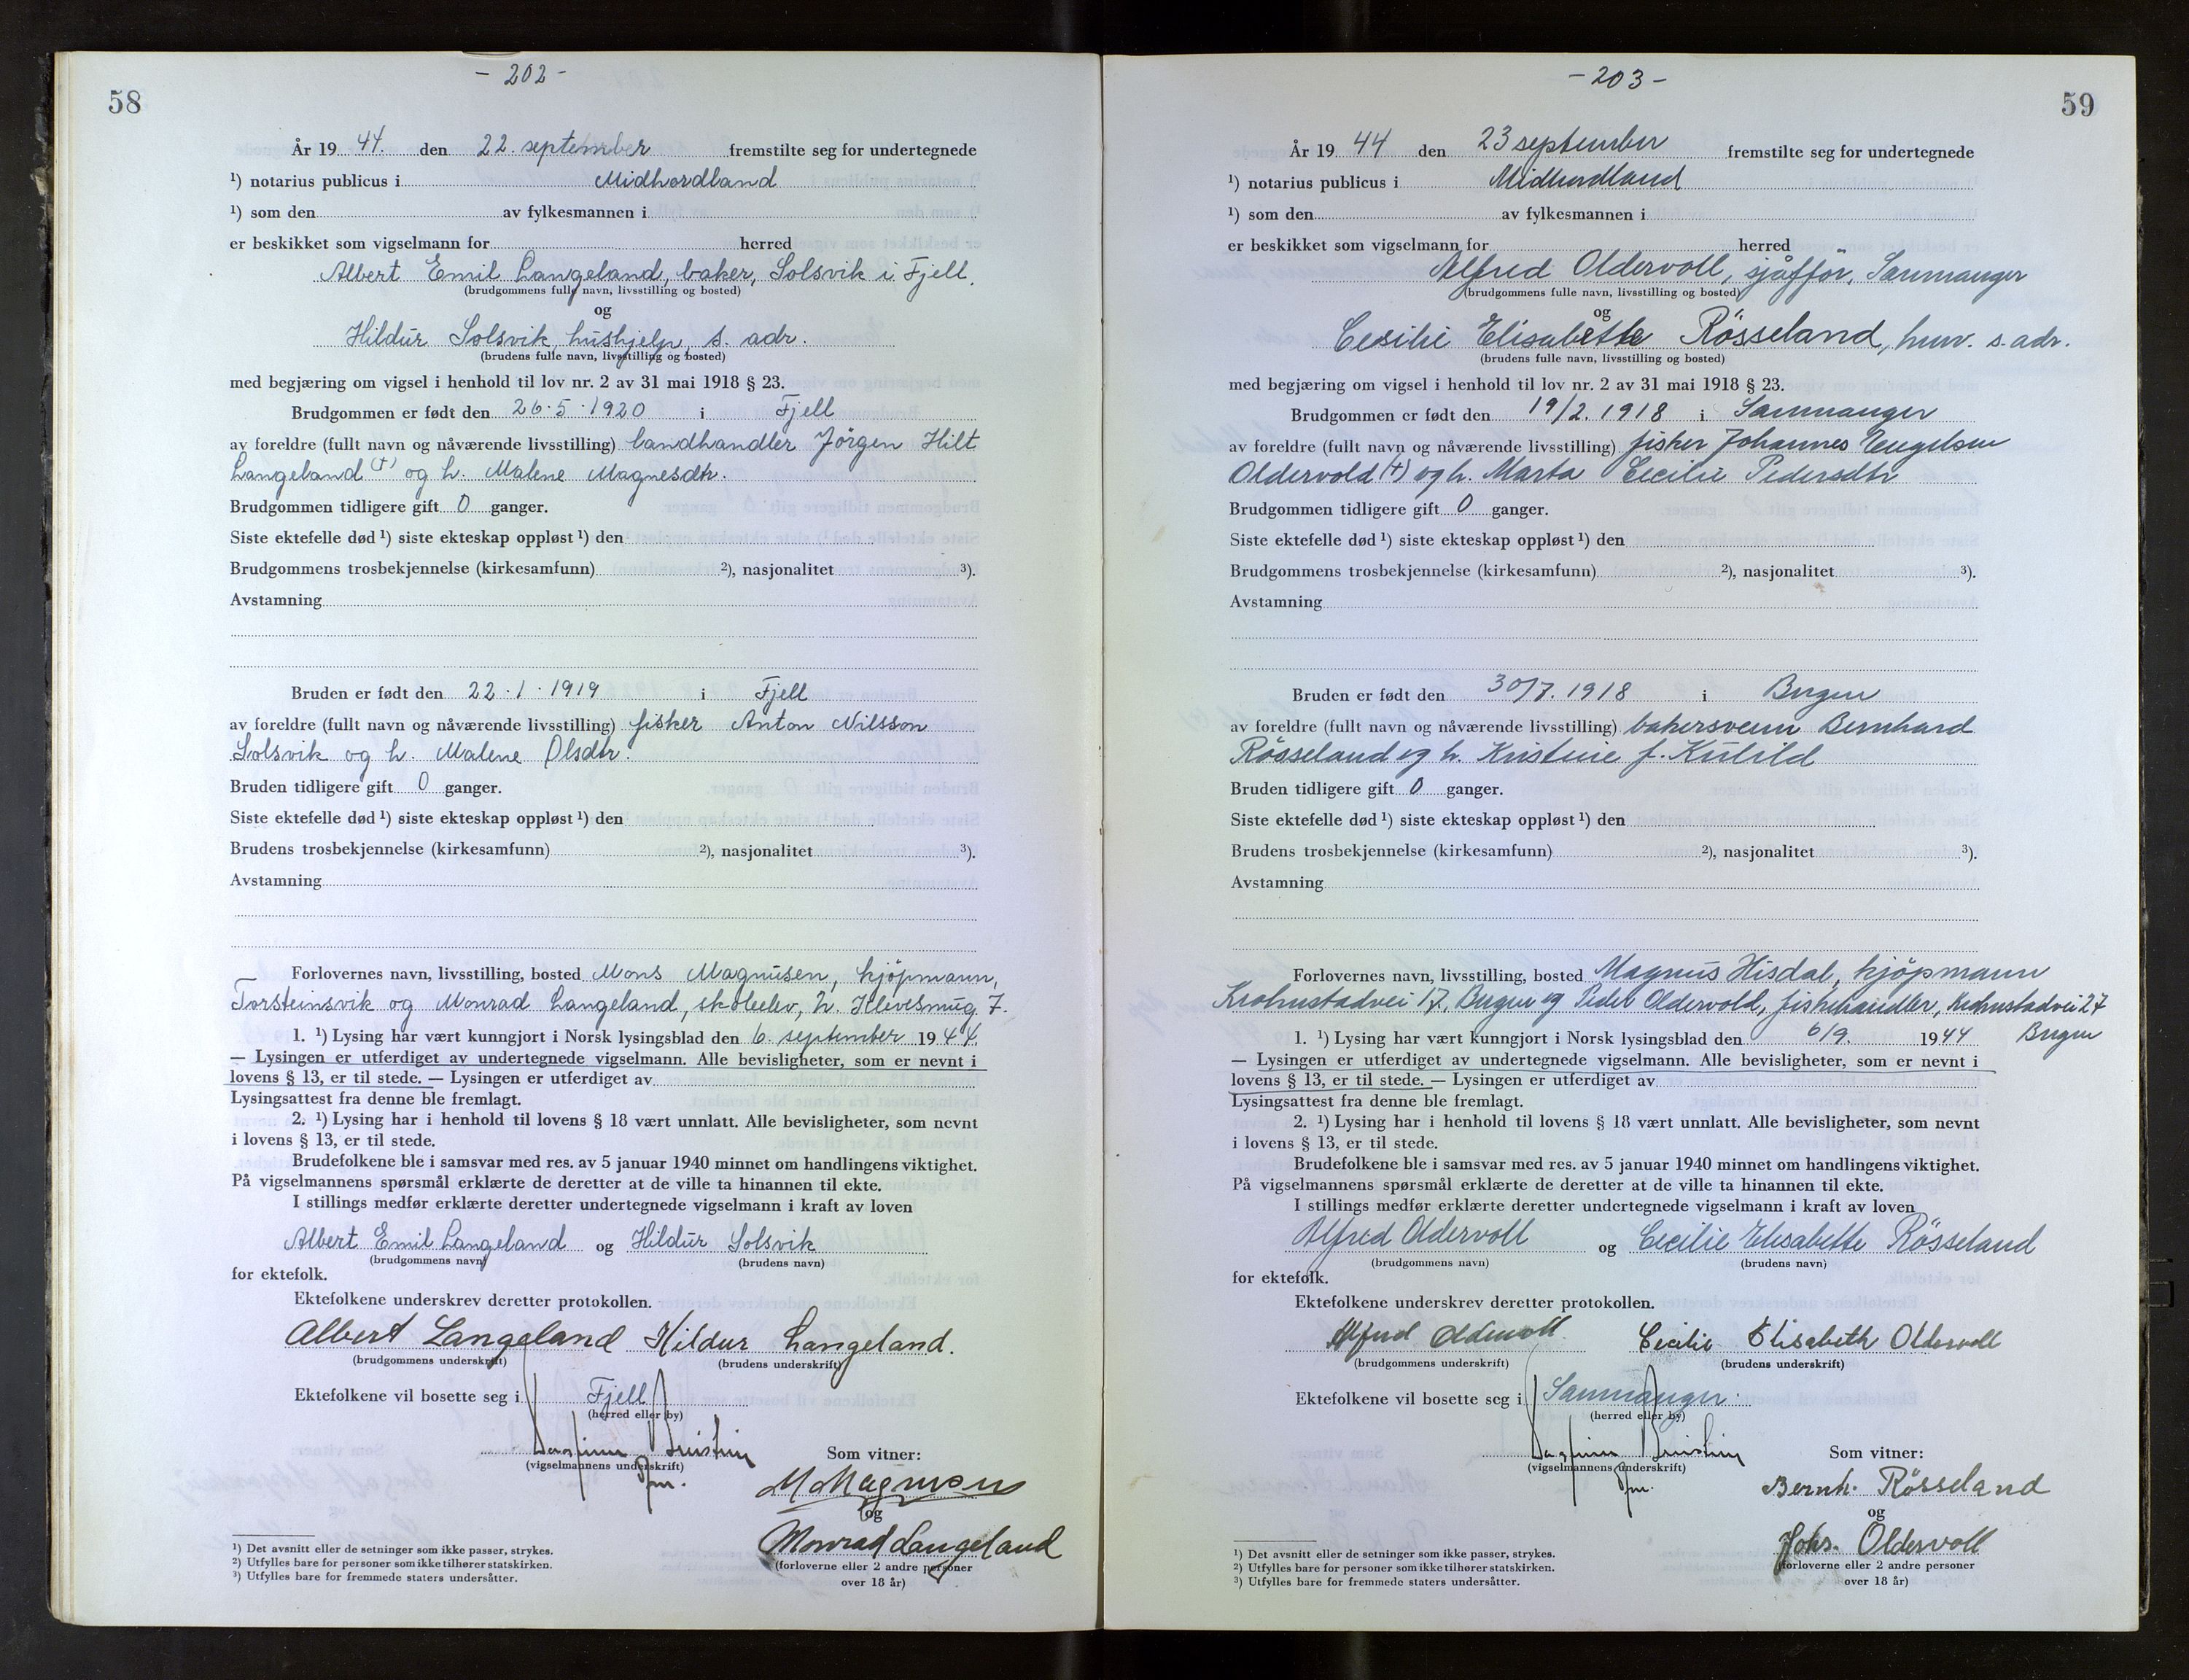 58
- 202 -
År 19 44. den 22. september fremstilte seg for undertegnede
¹) notarius publicus i Midhordland
¹) som den av fylkesmannen i
er beskikket som vigselmann for herred
Albert Emil Langeland, baker, Solsvik i Fjell.
(brudgommens fulle navn, livsstilling og bosted)
og
Hildur Solsvik, hushjelp, s. adr.
(brudens fulle navn, livsstilling og bosted)
med begjæring om vigsel i henhold til lov nr. 2 av 31 mai 1918 § 23.
Brudgommen er født den 26.5.1920 i Fjell
av foreldre (fullt navn og nåværende livsstilling) landhandler Jörgen Hilt
Langeland (†) og h. Malene Magnesdtr.
Brudgommen tidligere gift 0 ganger.
Siste ektefelle død ¹) siste ekteskap oppløst ¹) den
Brudgommens trosbekjennelse (kirkesamfunn) ²), nasjonalitet ³).
Avstamning
Bruden er født den 22.1.1919 i Fjell
av foreldre (fullt navn og nåværende livsstilling) fisker Anton Nilsson
Solsvik og h. Malene Olsdtr.
Bruden tidligere gift 0 ganger.
Siste ektefelle død ¹) siste ekteskap oppløst ¹) den
Brudens trosbekjennelse (kirkesamfunn) ²), nasjonalitet ³).
Avstamning
Forlovernes navn, livsstilling, bosted Mons Magnusen, kjöpmann,
Torsteinsvik og Monrad Langeland, skoleelev, h. Klevesmug 7.
1. ¹) Lysing har vært kunngjort i Norsk lysingsblad den 6. september 1944.
— Lysingen er utferdiget av undertegnede vigselmann. Alle bevisligheter, som er nevnt i
lovens § 13, er til stede. — Lysingen er utferdiget av
Lysingsattest fra denne ble fremlagt.
2. ¹) Lysing har i henhold til lovens § 18 vært unnlatt. Alle bevisligheter, som nevnt
i lovens § 13, er til stede.
Brudefolkene ble i samsvar med res. av 5 januar 1940 minnet om handlingens viktighet.
På vigselmannens spørsmål erklærte de deretter at de ville ta hinannen til ekte.
I stillings medfør erklærte deretter undertegnede vigselmann i kraft av loven
Albert Emil Langeland og Hildur Solsvik
(brudgommens navn) (brudens navn)
for ektefolk.
Ektefolkene underskrev deretter protokollen.
Albert Langeland Hildur Langeland.
(brudgommens underskrift) (brudens underskrift)
Ektefolkene vil bosette seg i Fjell
(herred eller by)
Som vitner:
(vigselmannens underskrift)
M Magnusen
og
Monrad Langeland
(forloverne eller 2 andre personer
over 18 år)
¹) Det avsnitt eller de setninger som ikke passer, strykes.
²) Utfylles bare for personer som ikke tilhører statskirken.
³) Utfylles bare for fremmede staters undersåtter.
- 203 -
59
År 19 44 den 23 september fremstilte seg for undertegnede
¹) notarius publicus i Midhordland
¹) som den av fylkesmannen i
er beskikket som vigselmann for herred
Alfred Oldervoll, sjåfför, Samnanger
(brudgommens fulle navn, livsstilling og bosted)
og
Cecilie Elisabette Rösseland, husv. s. adr.
(brudens fulle navn, livsstilling og bosted)
med begjæring om vigsel i henhold til lov nr. 2 av 31 mai 1918 § 23.
Brudgommen er født den 19/2. 1918 i Samnanger
av foreldre (fullt navn og nåværende livsstilling) fisker Johannes Engelsen
Oldervold (†) og h. Marta Cecilie Pedersdtr
Brudgommen tidligere gift 0 ganger.
Siste ektefelle død ¹) siste ekteskap oppløst ¹) den
Brudgommens trosbekjennelse (kirkesamfunn) ²), nasjonalitet ³).
Avstamning
Bruden er født den 30/7. 1918 i Bergen
av foreldre (fullt navn og nåværende livsstilling) bakersvenn Bernhard
Rösseland og h. Kristine f. Kulild
Bruden tidligere gift 0 ganger.
Siste ektefelle død ¹) siste ekteskap oppløst ¹) den
Brudens trosbekjennelse (kirkesamfunn) ²), nasjonalitet ³).
Avstamning
Forlovernes navn, livsstilling, bosted Magnus Hisdal, kjöpmann
Krohnstadvei 17, Bergen og Peder Oldervold, fiskehandler, Krohnstadvei 27
Bergen
1. ¹) Lysing har vært kunngjort i Norsk lysingsblad den 6/9. 1944
— Lysingen er utferdiget av undertegnede vigselmann. Alle bevisligheter, som er nevnt i
lovens § 13, er til stede. — Lysingen er utferdiget av
Lysingsattest fra denne ble fremlagt.
2. ¹) Lysing har i henhold til lovens § 18 vært unnlatt. Alle bevisligheter, som nevnt
i lovens § 13, er til stede.
Brudefolkene ble i samsvar med res. av 5 januar 1940 minnet om handlingens viktighet.
På vigselmannens spørsmål erklærte de deretter at de ville ta hinannen til ekte.
I stillings medfør erklærte deretter undertegnede vigselmann i kraft av loven
Alfred Oldervoll og Cecilie Elisabette Rösseland
(brudgommens navn) (brudens navn)
for ektefolk.
Ektefolkene underskrev deretter protokollen.
Alfred Oldervoll Cecilie Elisabeth Oldervoll
(brudgommens underskrift) (brudens underskrift)
Ektefolkene vil bosette seg i Samnanger
(herred eller by)
Som vitner:
(vigselmannens underskrift)
Bernh. Rösseland
og
Johs. Oldervoll
(forloverne eller 2 andre personer
over 18 år)
¹) Det avsnitt eller de setninger som ikke passer, strykes.
²) Utfylles bare for personer som ikke tilhører statskirken.
³) Utfylles bare for fremmede staters undersåtter.